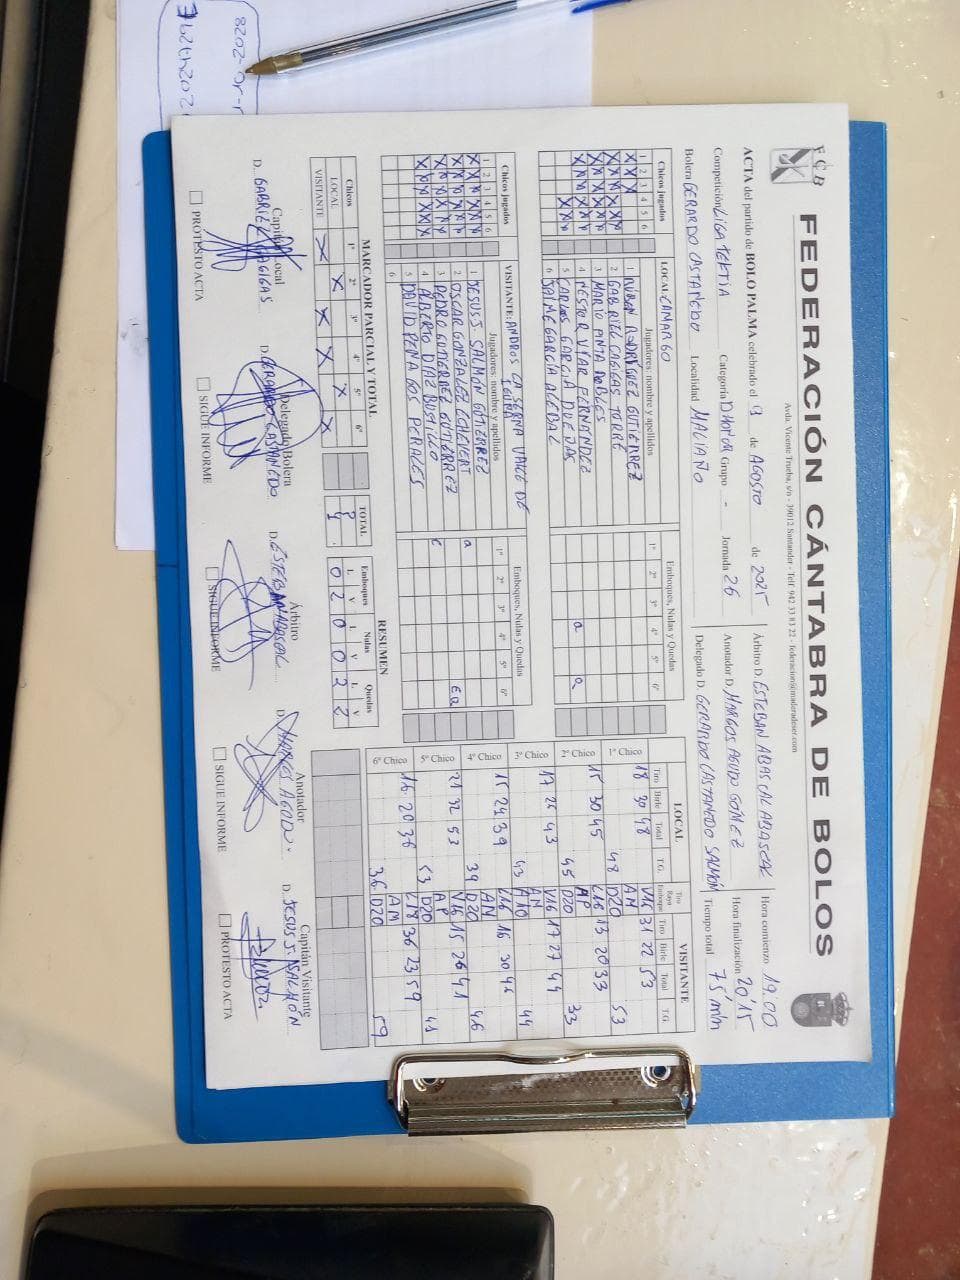 FCB
FEDERACIÓN CÁNTABRA DE BOLOS
Avda. Vicente Trueba, s/n - 39012 Santander - Telf: 942 33 83 22 - federacion@maderadeser.com
ACTA del partido de BOLO PALMA celebrado el 9 de AGOSTO de 2025
Árbitro D. ESTEBAN ABASCAL ABASCAL
Hora comienzo 19.00
Competición LIGA TEFTIA Categoría D HONOR Grupo - Jornada 26
Anotador D. MARGOS AGUDO GÓMEZ
Hora finalización 20'15
Bolera GERARDO CASTANEDO Localidad MALIAÑO
Delegado D. GERARDO CASTANEDO SALMÓN
Tiempo total 75 min
Chicos jugados
1 2 3 4 5 6
LOCAL: CAMARGO
Jugadores: nombre y apellidos
Emboques, Nulas y Quedas
1º 2º 3º 4º 5º 6º
1 RUBEN RODRIGUEZ GUTIERREZ
2 GABRIEL CAGIGAS TORRE
3 MARIO PINTA ROBLES
4 NESTOR VIAR FERNANDEZ Q Q
5 CARLOS GARCIA DUEJAS
6 JAIME GARCIA ACEDAL
Chicos jugados
1 2 3 4 5 6
VISITANTE: ANDROS LA SERNA VALLE DE IGUÑA
Jugadores: nombre y apellidos
Emboques, Nulas y Quedas
1º 2º 3º 4º 5º 6º
1 JESUS J. SALMÓN GUTIERREZ Q
2 OSCAR GONZALEZ ECHEVERT EQ
3 PEDRO GUTIERREZ GUTIERREZ E
4 ALBERTO DIAZ BUSTILLO
5 DAVID PENAGOS PERALES
6
LOCAL
VISITANTE
Tiro Birle Total T.G.
Tiro Raya Emboque
Tiro Birle Total T.G.
1º Chico 18 30 48 V16 31 22 53
AM
48 D20 53
2º Chico 15 30 45 L16 13 20 33
AP
45 D20 33
3º Chico 17 26 43 V16 17 27 44
AM
43 A10 44
4º Chico 15 24 39 L16 16 30 46
AM
39 D20 46
5º Chico 21 32 53 V16 15 26 41
AP
53 D20 41
6º Chico 16 20 36 L18 36 23 59
AM
36 D20 59
MARCADOR PARCIAL Y TOTAL
Chicos 1º 2º 3º 4º 5º 6º TOTAL
LOCAL X X 2
VISITANTE X X X X 4
RESUMEN
Emboques Nulas Quedas
L V L V L V
0 2 0 0 2 2
Capitán Local
D. GABRIEL CAGIGAS
PROTESTO ACTA
Delegado Bolera
D. GERARDO CASTANEDO
SIGUE INFORME
Árbitro
D. ESTEBAN ABASCAL
SIGUE INFORME
Anotador
D. MARGOS AGUDO
SIGUE INFORME
Capitán Visitante
D. JESUS J. SALMÓN
PROTESTO ACTA